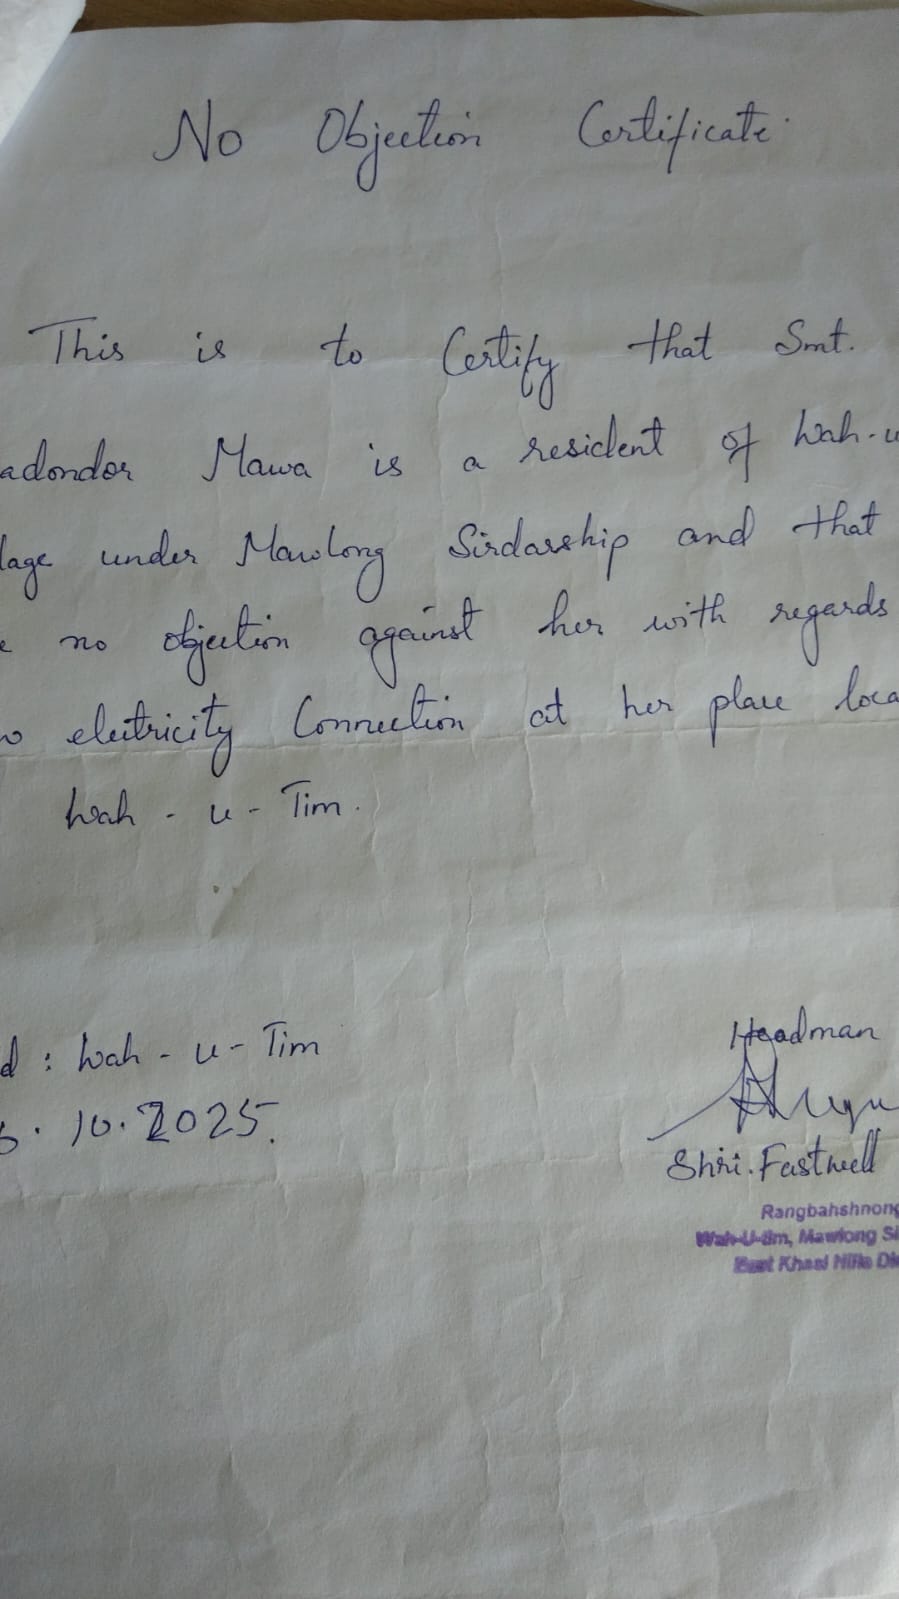 No Objection Certificate.
This is to Certify that Smt.
adondor Mawa is a resident of Wah-u
lage under Mawlong Sirdarship and that
e no objection against her with regards
o electricity Connection at her place loca
Wah - u - Tim.
d : Wah - u - Tim
10.2025.
Headman
Shri. Fastwell
Rangbahshnong
Wah-U-tim, Mawlong Si
East Khasi Hills Dis